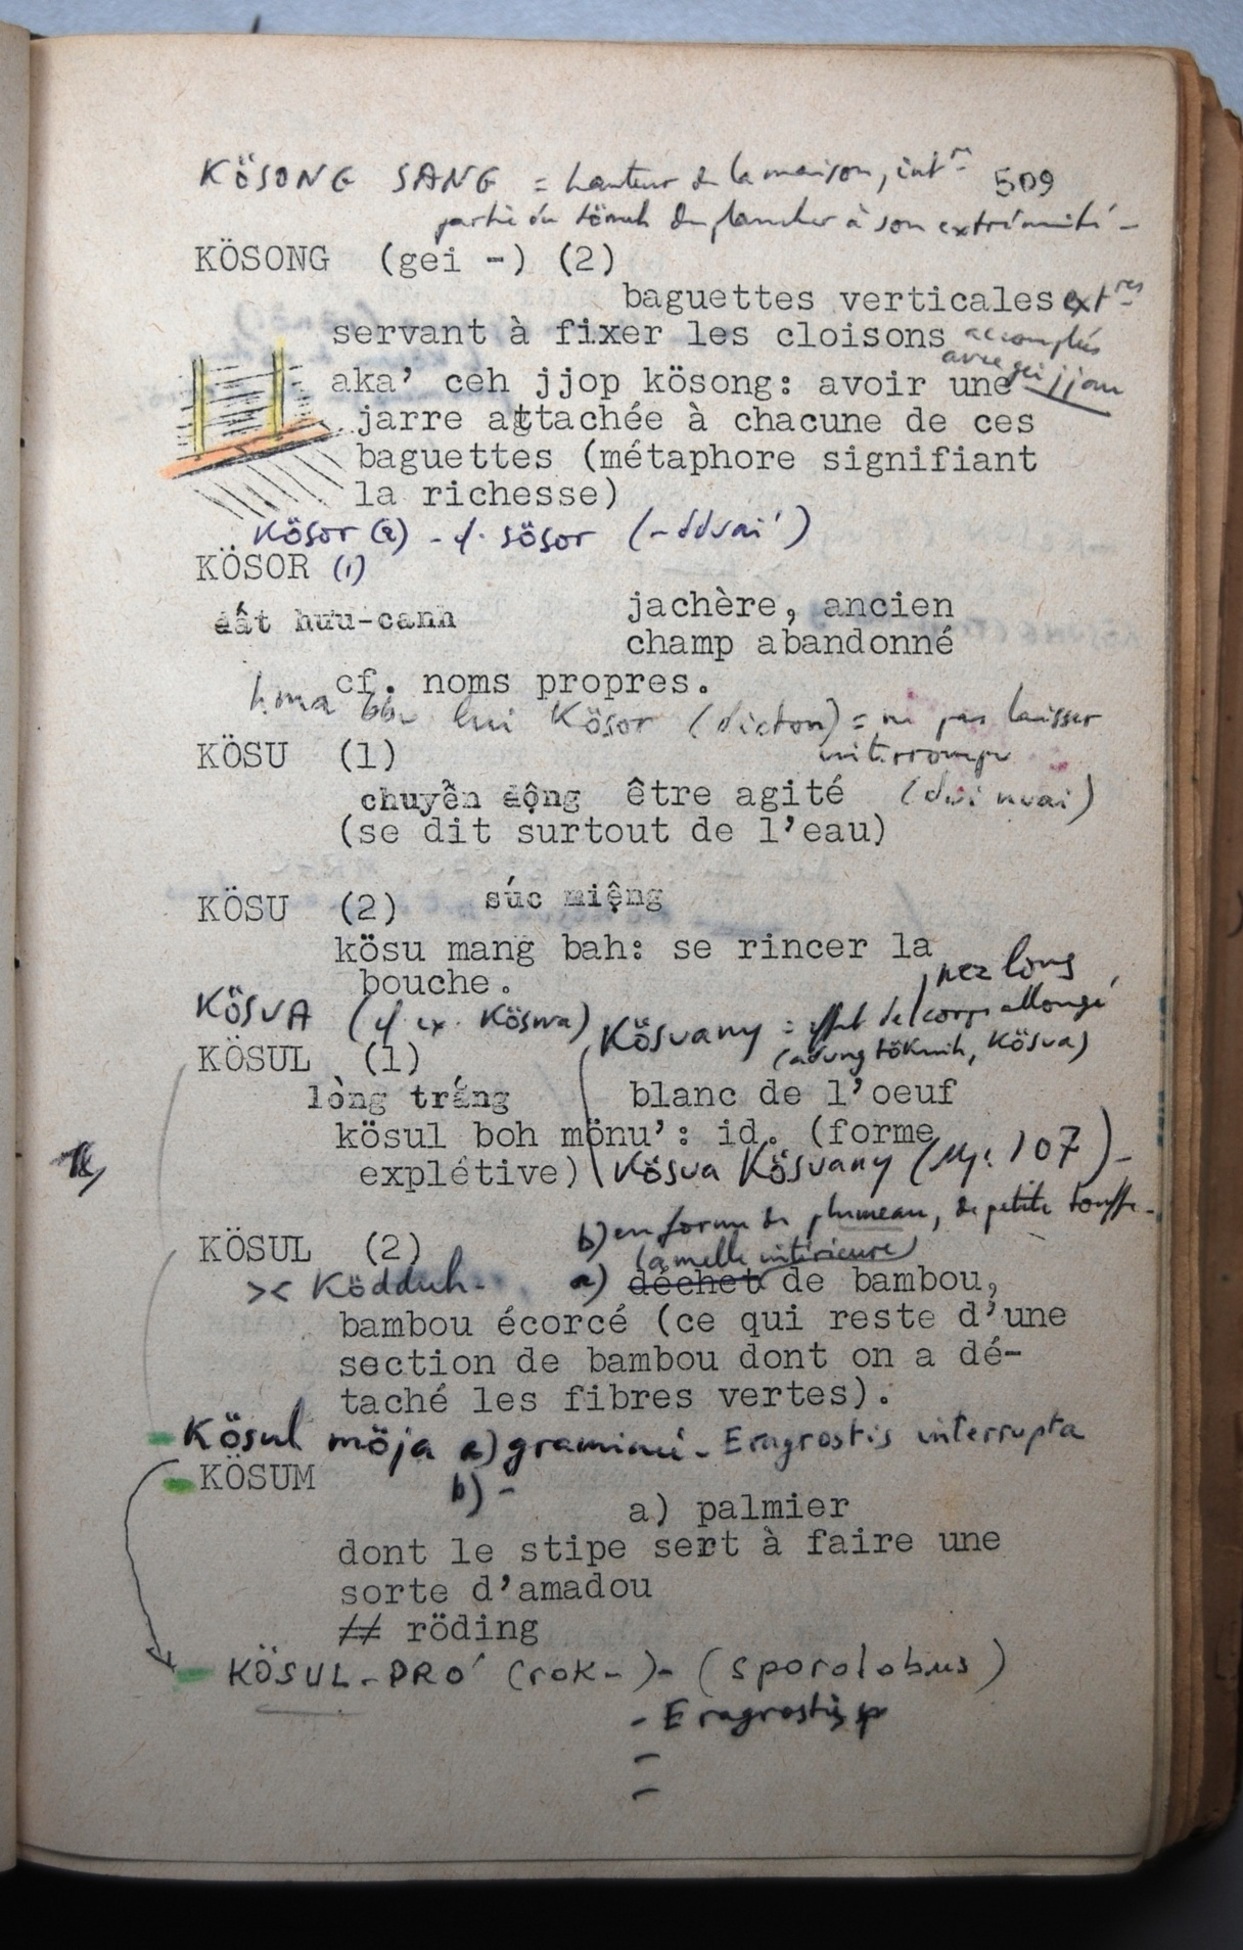 KÖSONG SANG = hauteur de la maison, intre 509
partie du tömeh du plancher à son extrémité -
KÖSONG (gei -) (2)
baguettes verticales extres
servant à fixer les cloisons accouplés
avec gei jjou
aka' ceh jjop kösong: avoir une
jarre attachée à chacune de ces
baguettes (métaphore signifiant
la richesse)
Kösor (2) - cf. sösor (-ddvai')
KÖSOR (1)
đất hưu-canh jachère, ancien
champ abandonné
cf. noms propres.
hma bbu lui Kösor (dicton) = ne pas laisser
interrompu
KÖSU (1)
chuyển động être agité
(se dit surtout de l'eau)
KÖSU (2) súc miệng
kösu mang bah: se rincer la
bouche.
nez long
KÖSVA (cf ex. Köswa) Kösvany = effet de corps allongé
(adung tökuih, Kösva)
KÖSUL (1)
lòng trắng blanc de l'oeuf
kösul boh mönu': id. (forme
explétive) Kösva Kösvany (107) -
b) en forme de plumeau, de petite touffe -
KÖSUL (2) (lamelle intérieure)
>< Ködduh - a) déchet de bambou,
bambou écorcé (ce qui reste d'une
section de bambou dont on a dé-
taché les fibres vertes).
- Kösul möja a) graminé - Eragrostis interrupta
- KÖSUM b) -
a) palmier
dont le stipe sert à faire une
sorte d'amadou
≠≠ röding
- KÖSUL-PRO' (rok-) - (sporolobus)
- Eragrostis sp
-
-